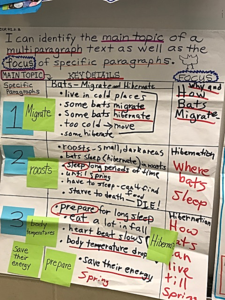 I can identify the main topic of a
multiparagraph text as well as the
focus of specific paragraphs.
MAIN TOPIC
KEY DETAILS
FOCUS
Specific
Paragraphs
Bats - Migrate and Hibernate
• live in cold places
• some bats migrate
• some bats hibernate
• too cold → move
• some hibernate
Why and
How
Bats
Migrate
1
Migrate
2
roosts
• roosts - small, dark areas
• bats sleep (hibernate) in roosts
• sleep long periods of time
• until spring
• have to sleep - can't find
• starve to death food
DIE!
Hibernation
Where
bats
Sleep
3
body
temperatures
Save
their
energy
prepare
• prepare for long sleep
• eat a lot in fall
• heart beat slows
• body temperature drop
• save their energy
Spring
Hibernation
How
can
live
till
Spring